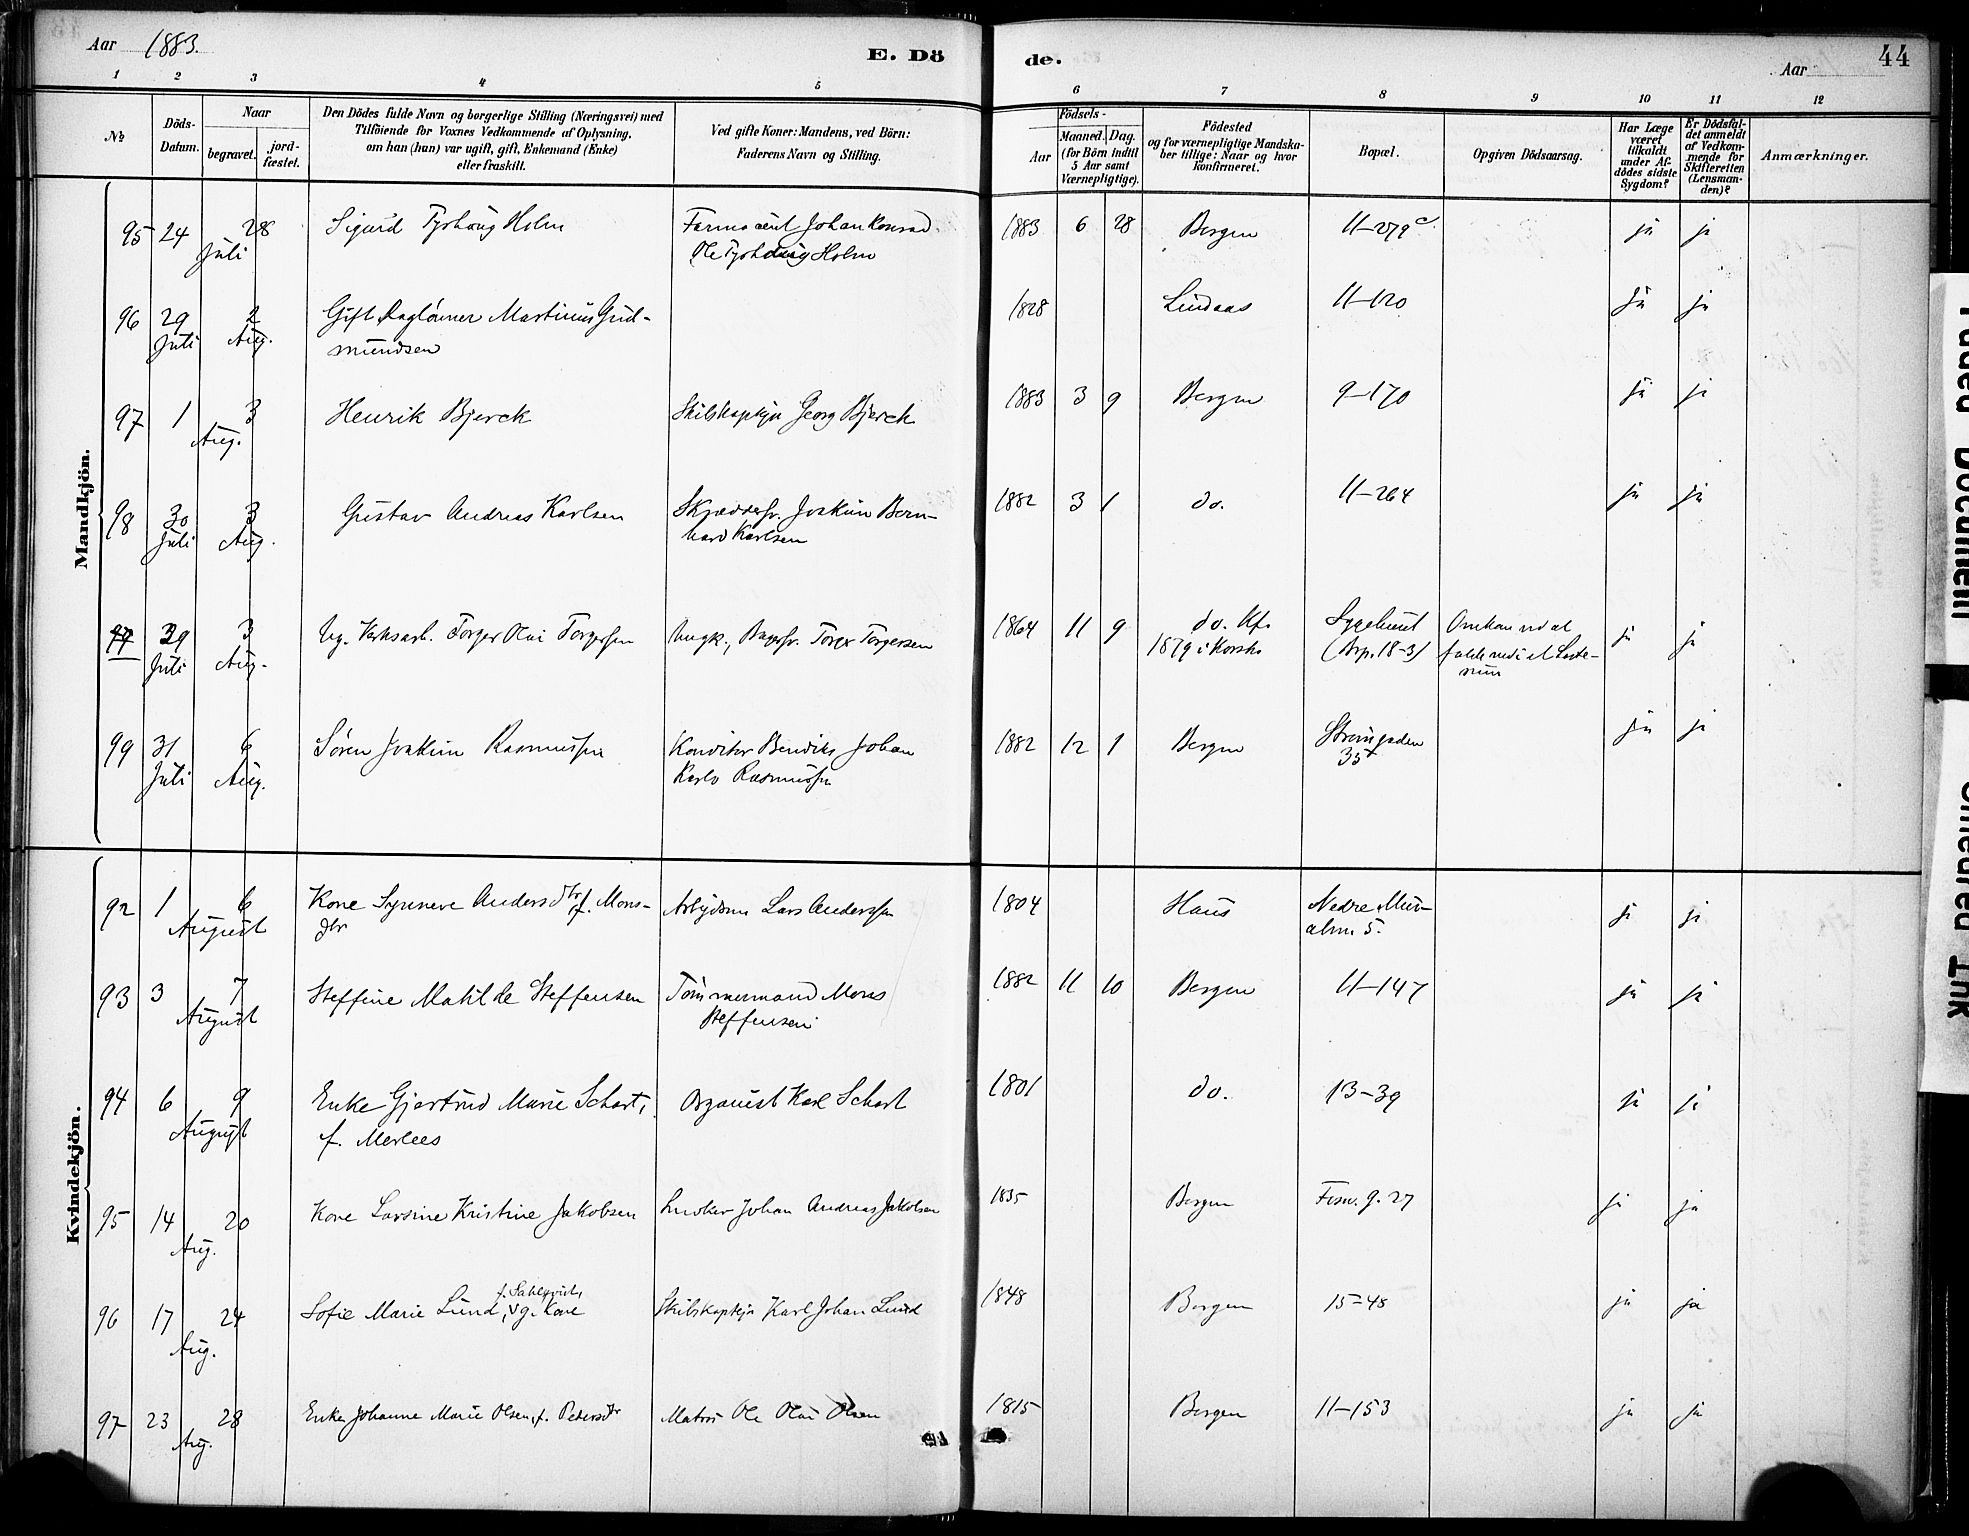 Aar 1883. E. Dö de. Aar 44
1 2 3 4 5 6 7 8 9 10 11 12
№
Döds-Datum.
Naar
begravet.
jord-fæstet.
Den Dödes fulde Navn og borgerlige Stilling (Næringsvei) med
Tilföiende for Voxnes Vedkommende af Oplysning,
om han (hun) var ugift, gift, Enkemand (Enke)
eller fraskilt.
Ved gifte Koner: Mandens, ved Börn:
Faderens Navn og Stilling.
Födsels-
Aar
Maaned. Dag.
(for Börn indtil
5 Aar samt
Værnepligtige).
Födested
og for værnepligtige Mandska-
ber tillige: Naar og hvor
konfirmeret.
Bopæl.
Opgiven Dödsaarsag.
Har Læge
været
tilkaldt
under Af-
dödes sidste
Sygdom?
Er Dödsfal-
det anmeldt
af Vedkom-
mende for
Skifteretten
(Lensman-
den)?
Anmærkninger.
Mandkjön.
95 24 28 Sigurd Tyshoug Holm Farmaceut Johan Konrad 1883 6 28 Bergen 11-279c ja ja
Juli Ole Tyshoug Holm
96 29 2 Gift Daglønner Martinus Gud- 1828 Lindaas 11-120 ja ja
Juli Aug. mundsen
97 1 3 Henrik Bjerck Skibskaptjn Georg Bjerck 1883 3 9 Bergen 9-170 ja ja
Aug.
98 30 3 Gustav Andreas Karlsen Skjæddersv. Joakim Bern- 1882 3 1 do. 11-264 ja ja
Juli Aug. hard Karlsen
29 3 Ug. Torger Olai Torgersen Ungk., Torger Torgersen 1864 11 9 do. Kf. ja ja
Juli Aug. 1879 i Korsk. 18-3)
99 31 6 Søren Joakim Rasmussen Konditor Bendiks Johan 1882 12 1 Bergen Strangaden ja ja
Juli Aug. Karlo Rasmussen 35
Kvindekjön.
92 1 6 Kone Synneve Andersdtr f. Mons- Arbejdsm Lars Anderssen 1804 Haus Nedre Mur- ja ja
August dtr alm. 5.
93 3 7 Steffine Matilde Steffensen Tømmermand Mons 1882 11 10 Bergen 11-147 ja ja
August Steffensen
94 6 9 Enke Gjertrud Marie Schart, Organist Karl Schart 1801 do. 13-39 ja ja
August f. Merlees
95 14 20 Kone Larsine Kristine Jakobsen Snedker Johan Andreas Jakobsen 1835 Bergen Fosw. g. 27 ja ja
Aug.
f. Sahlqvist,
96 17 24 Sofie Marie Lund, g. Kone Skibskaptjn Karl Johan Lund 1848 Bergen 15-48 ja ja
Aug.
97 23 28 Enke Johanne Marie Olsen, f. Pedersdtr Matros Ole Olai Olsen 1815 Bergen 11-153 ja ja
Aug.